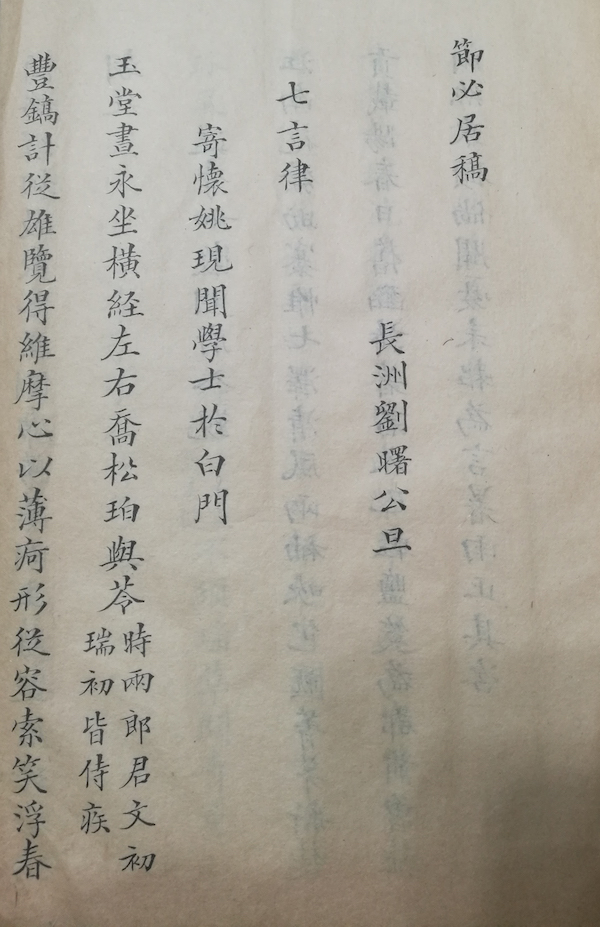 節必居稿
長洲劉曙公旦
七言律
寄懷姚現聞學士於白門
玉堂晝永坐橫経左右喬松珀與苓
時兩郎君文初
瑞初皆侍疾
豐鎬計從雄覽得維摩心以薄疴形從容索笑浮春